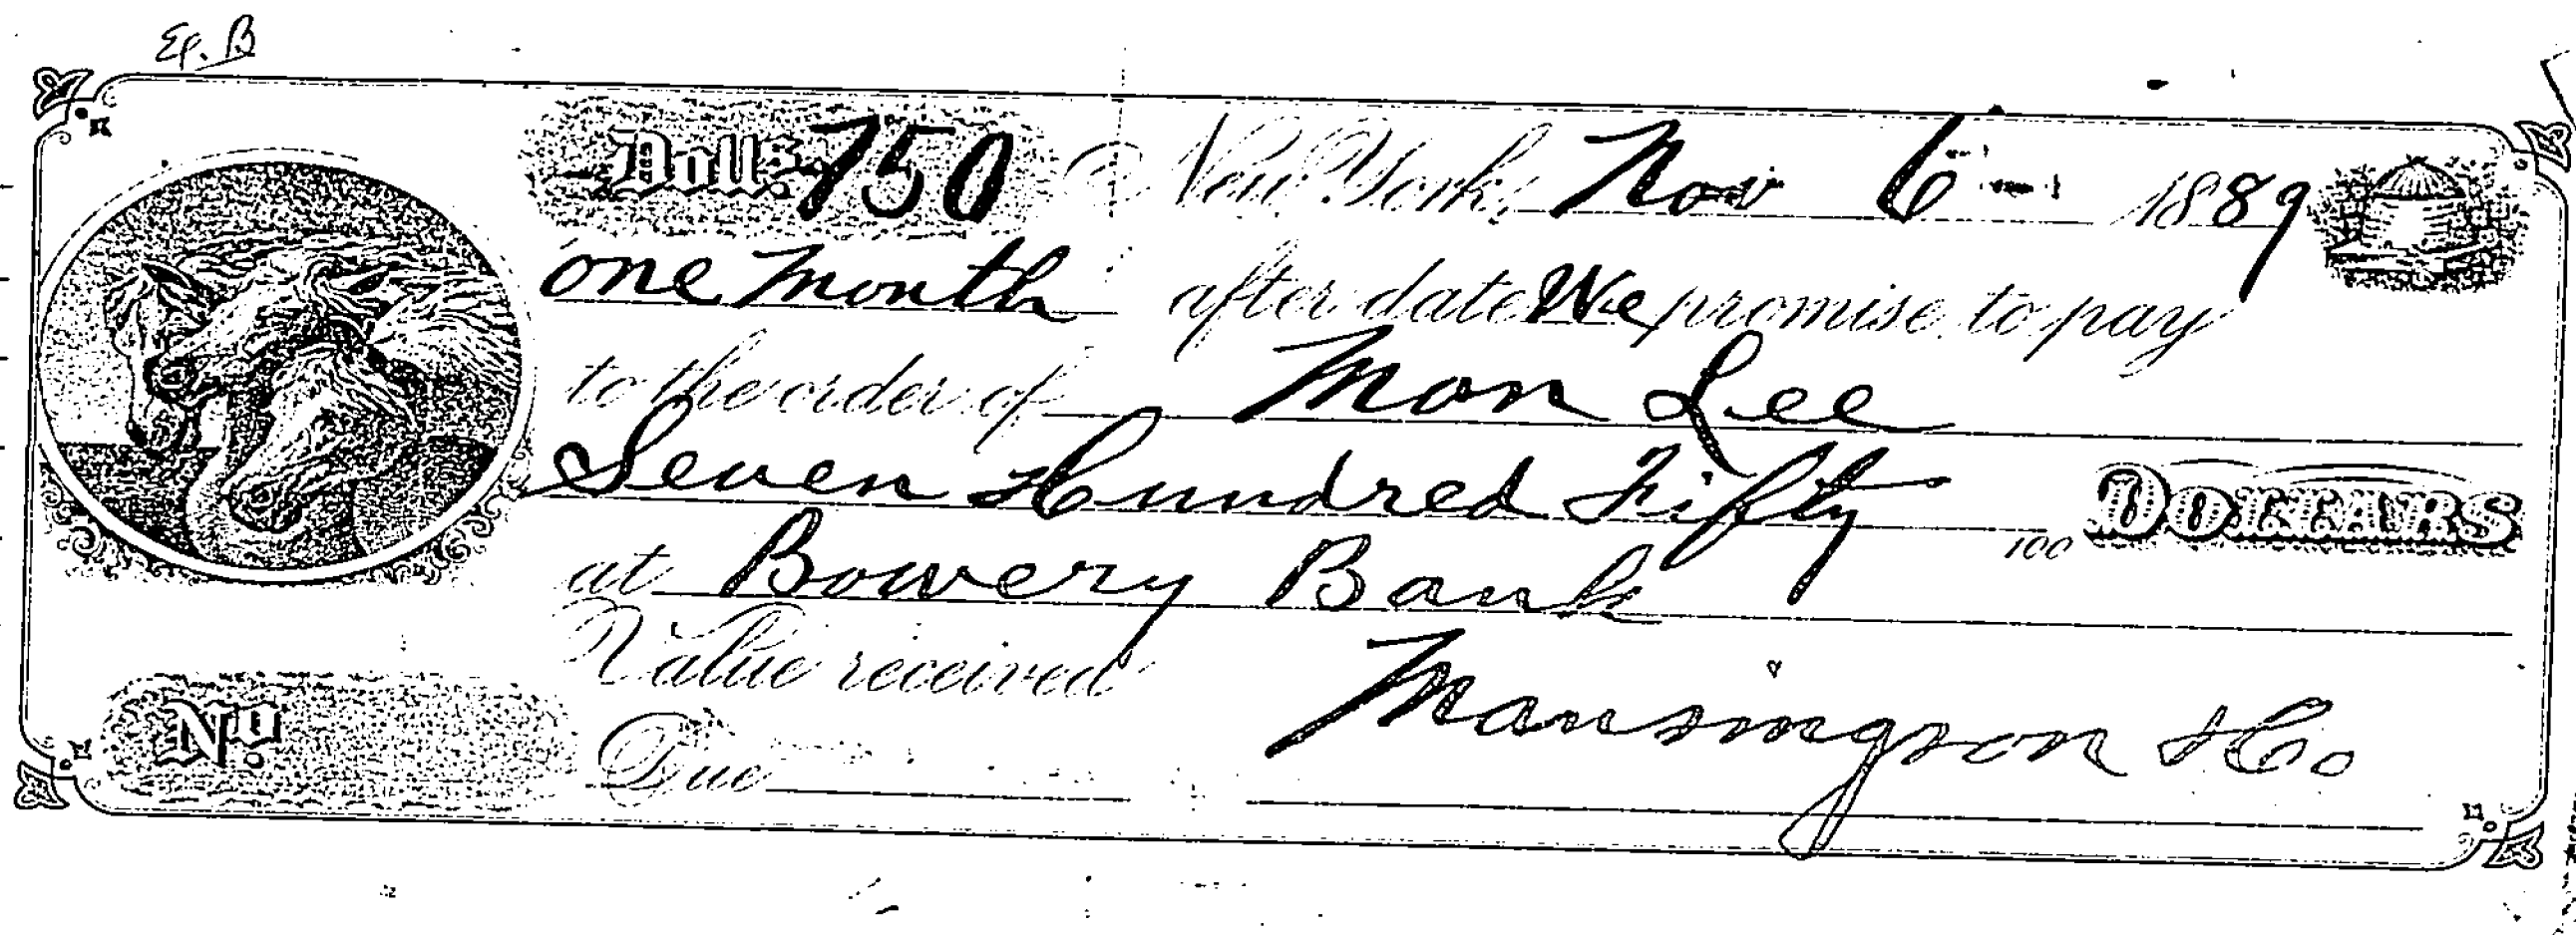 Ex. B
Dolls. 750 New York, Nov 6 1889
one month after date We promise to pay
to the order of Mon Lee
Seven Hundred Fifty 100 DOLLARS
at Bowery Bank
Value received
No. Due & Co